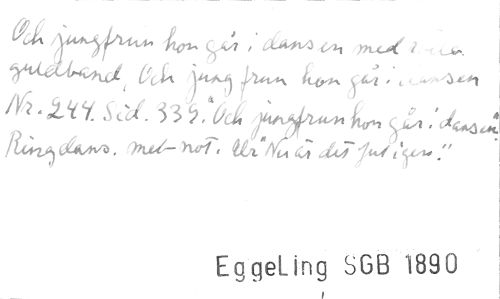 Och jungfrun hon går i dansen med röda
guldband, Och jungfrun hon går i dansen
Nr. 244. Sid. 339. "Och jungfrun hon går i dansen".
Ringdans. met not. Ur "Nu är det Jul igen."
Eggeling SGB 1890